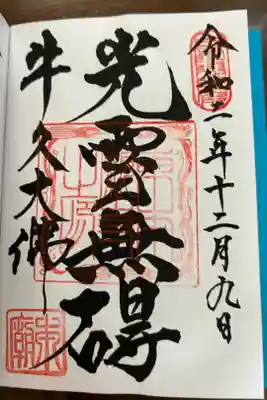 令和二年十二月九日
光雲無碍
牛久大佛